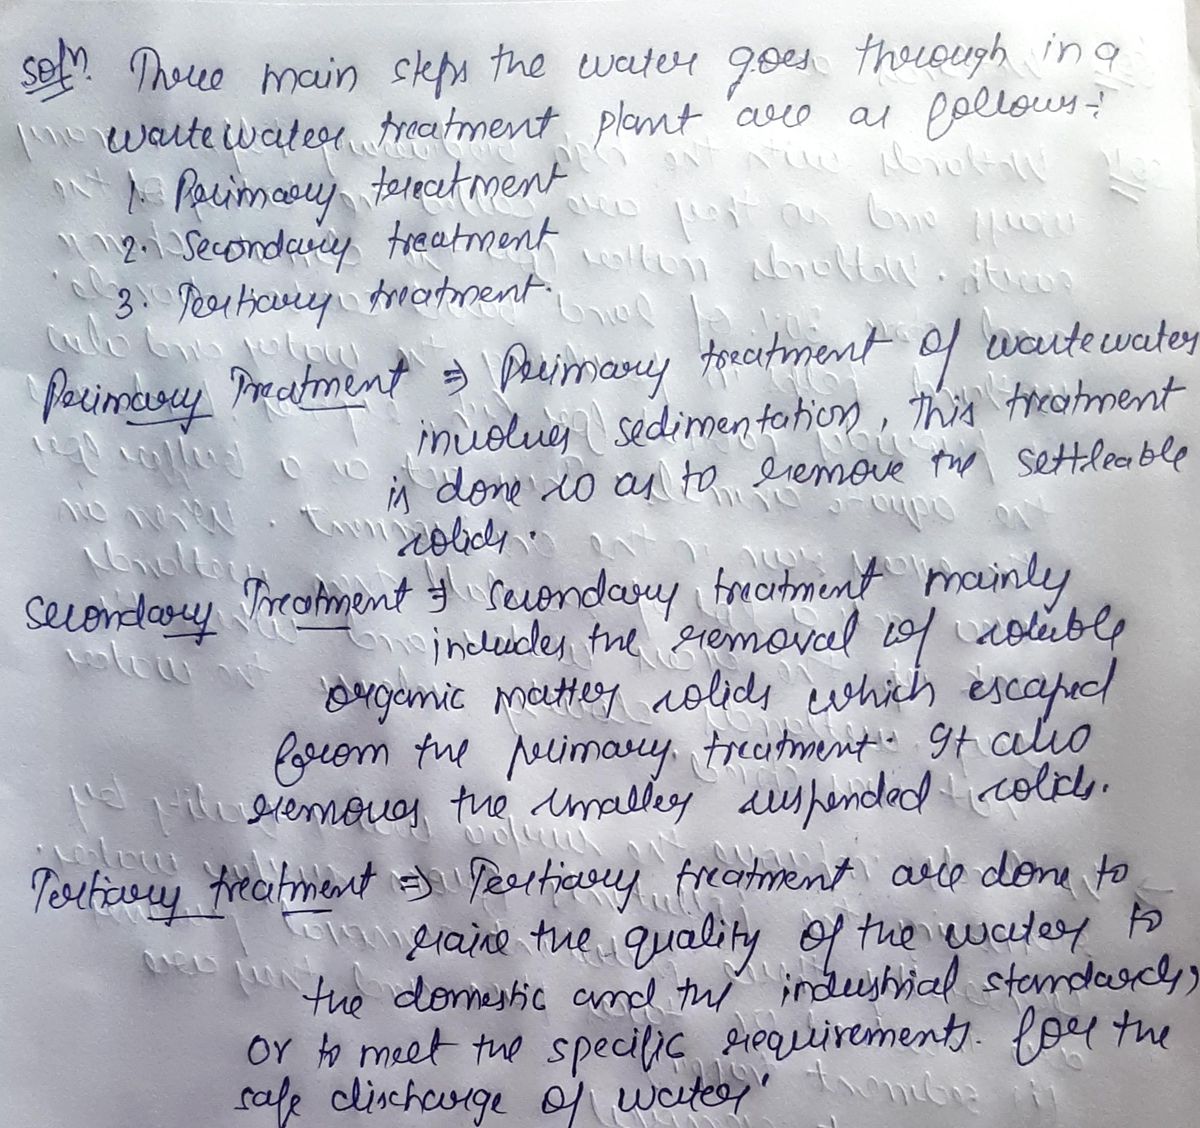 Soln. Three main steps the water goes through in a
wastewater treatment plant are as follows:-
1. Primary treatment
2. Secondary treatment
3. Tertiary treatment.
Primary Treatment ⇒ Primary treatment of wastewater
involves sedimentation, this treatment
is done so as to remove the settleable
solids.
Secondary Treatment ⇒ Secondary treatment mainly
includes the removal of soluble
organic matter solids which escaped
from the primary treatment. It also
removes the smaller suspended solids.
Tertiary treatment ⇒ Tertiary treatment are done to
raise the quality of the water to
the domestic and the industrial standards,
or to meet the specific requirements. for the
safe discharge of water.